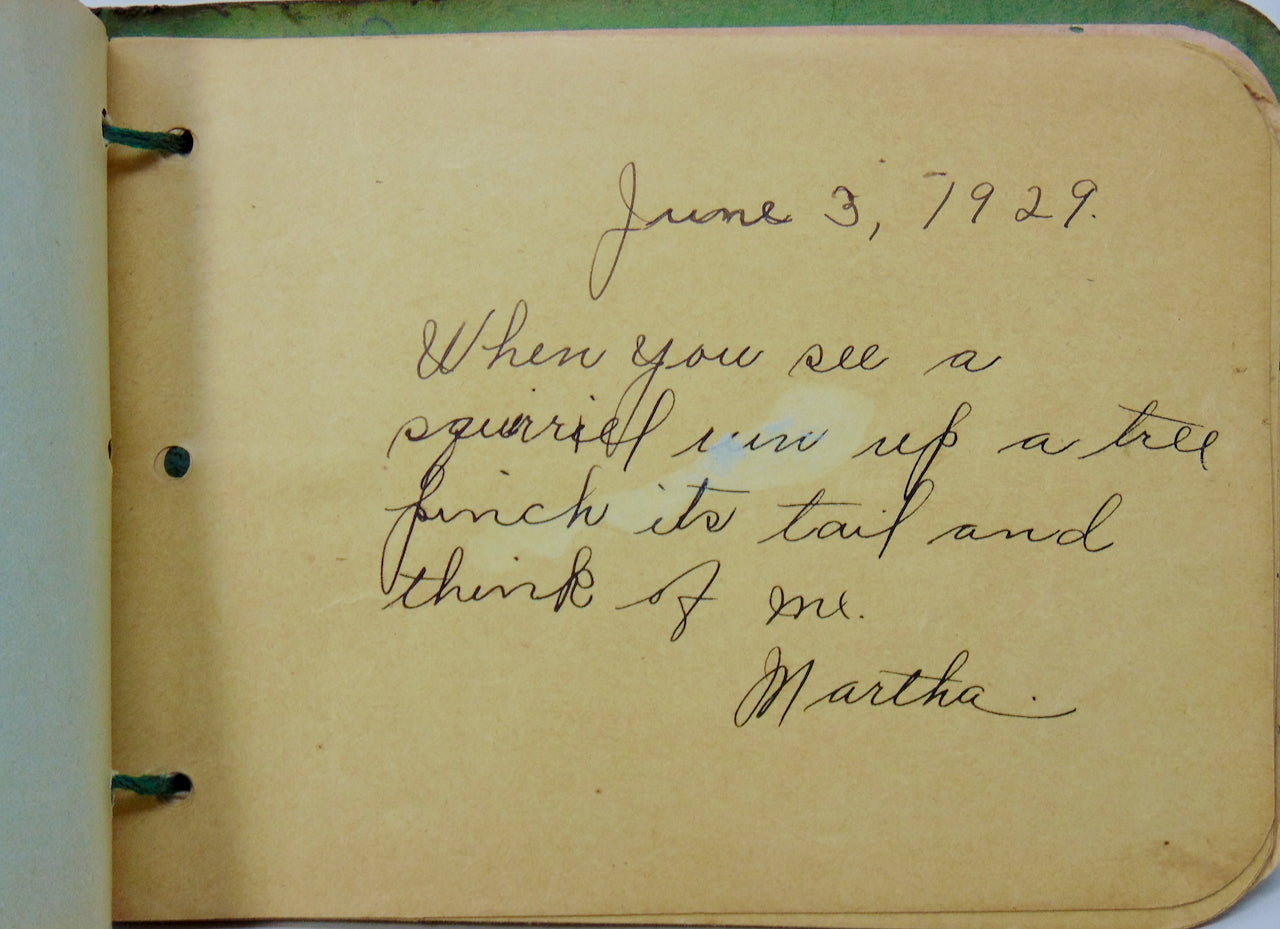 June 3, 1929.
When you see a
squirriel run up a tree
pinch its tail and
think of me.
Martha.